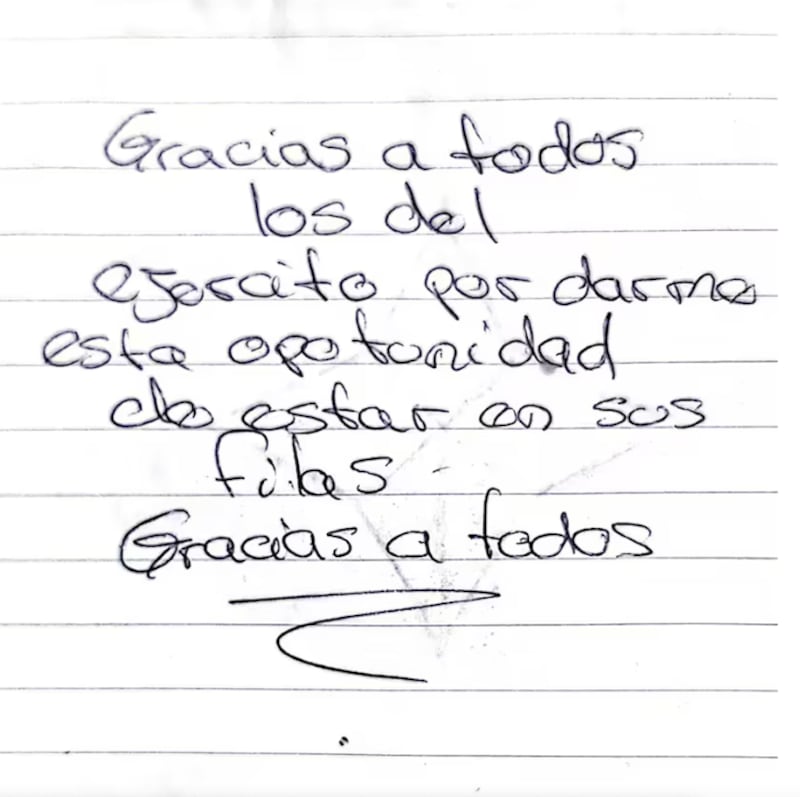 Gracias a todos
los del
ejercito por darme
esta opotunidad
de estar en sus
filas
Gracias a todos